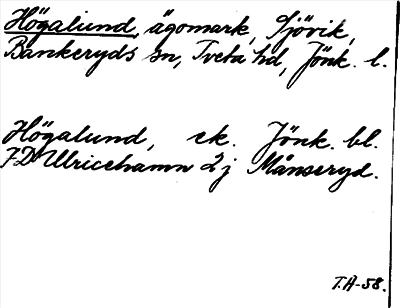 Högalund, ägomark, Sjövik,
Bankeryds sn, Tveta hd, Jönk. l.
Högalund, ek. Jönk. bl.
7D Ulricehamn 2j Månseryd.
T.A-58.